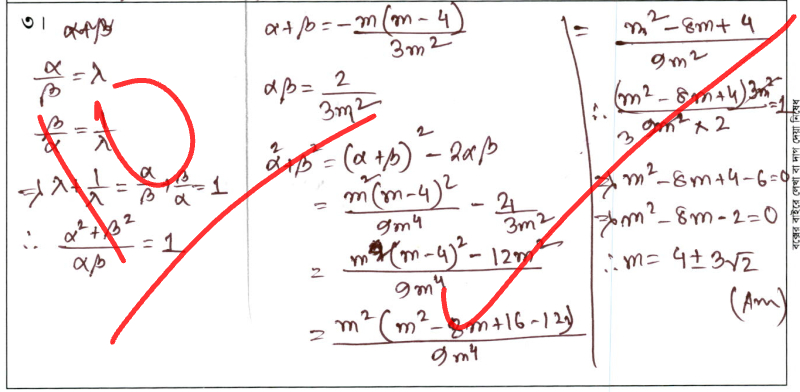 ৩। α+β
α/β = λ
β/α = 1/λ
⇒ λ + 1/λ = α/β + β/α = 1
∴ (α² + β²)/αβ = 1
α+β = - m(m-4)/3m²
αβ = 2/3m²
α²+β² = (α+β)² - 2αβ
= m²(m-4)²/9m⁴ - 4/3m²
= (m²(m-4)² - 12m²)/9m⁴
= m²(m² - 8m + 16 - 12)/9m⁴
= (m² - 8m + 4)/9m²
∴ (m² - 8m + 4) 3m²/(9m² × 2) = 1
3
⇒ m² - 8m + 4 - 6 = 0
⇒ m² - 8m - 2 = 0
∴ m = 4 ± 3√2
(Ans)
বক্সের বাইরে লেখা বা দাগ দেয়া নিষেধ